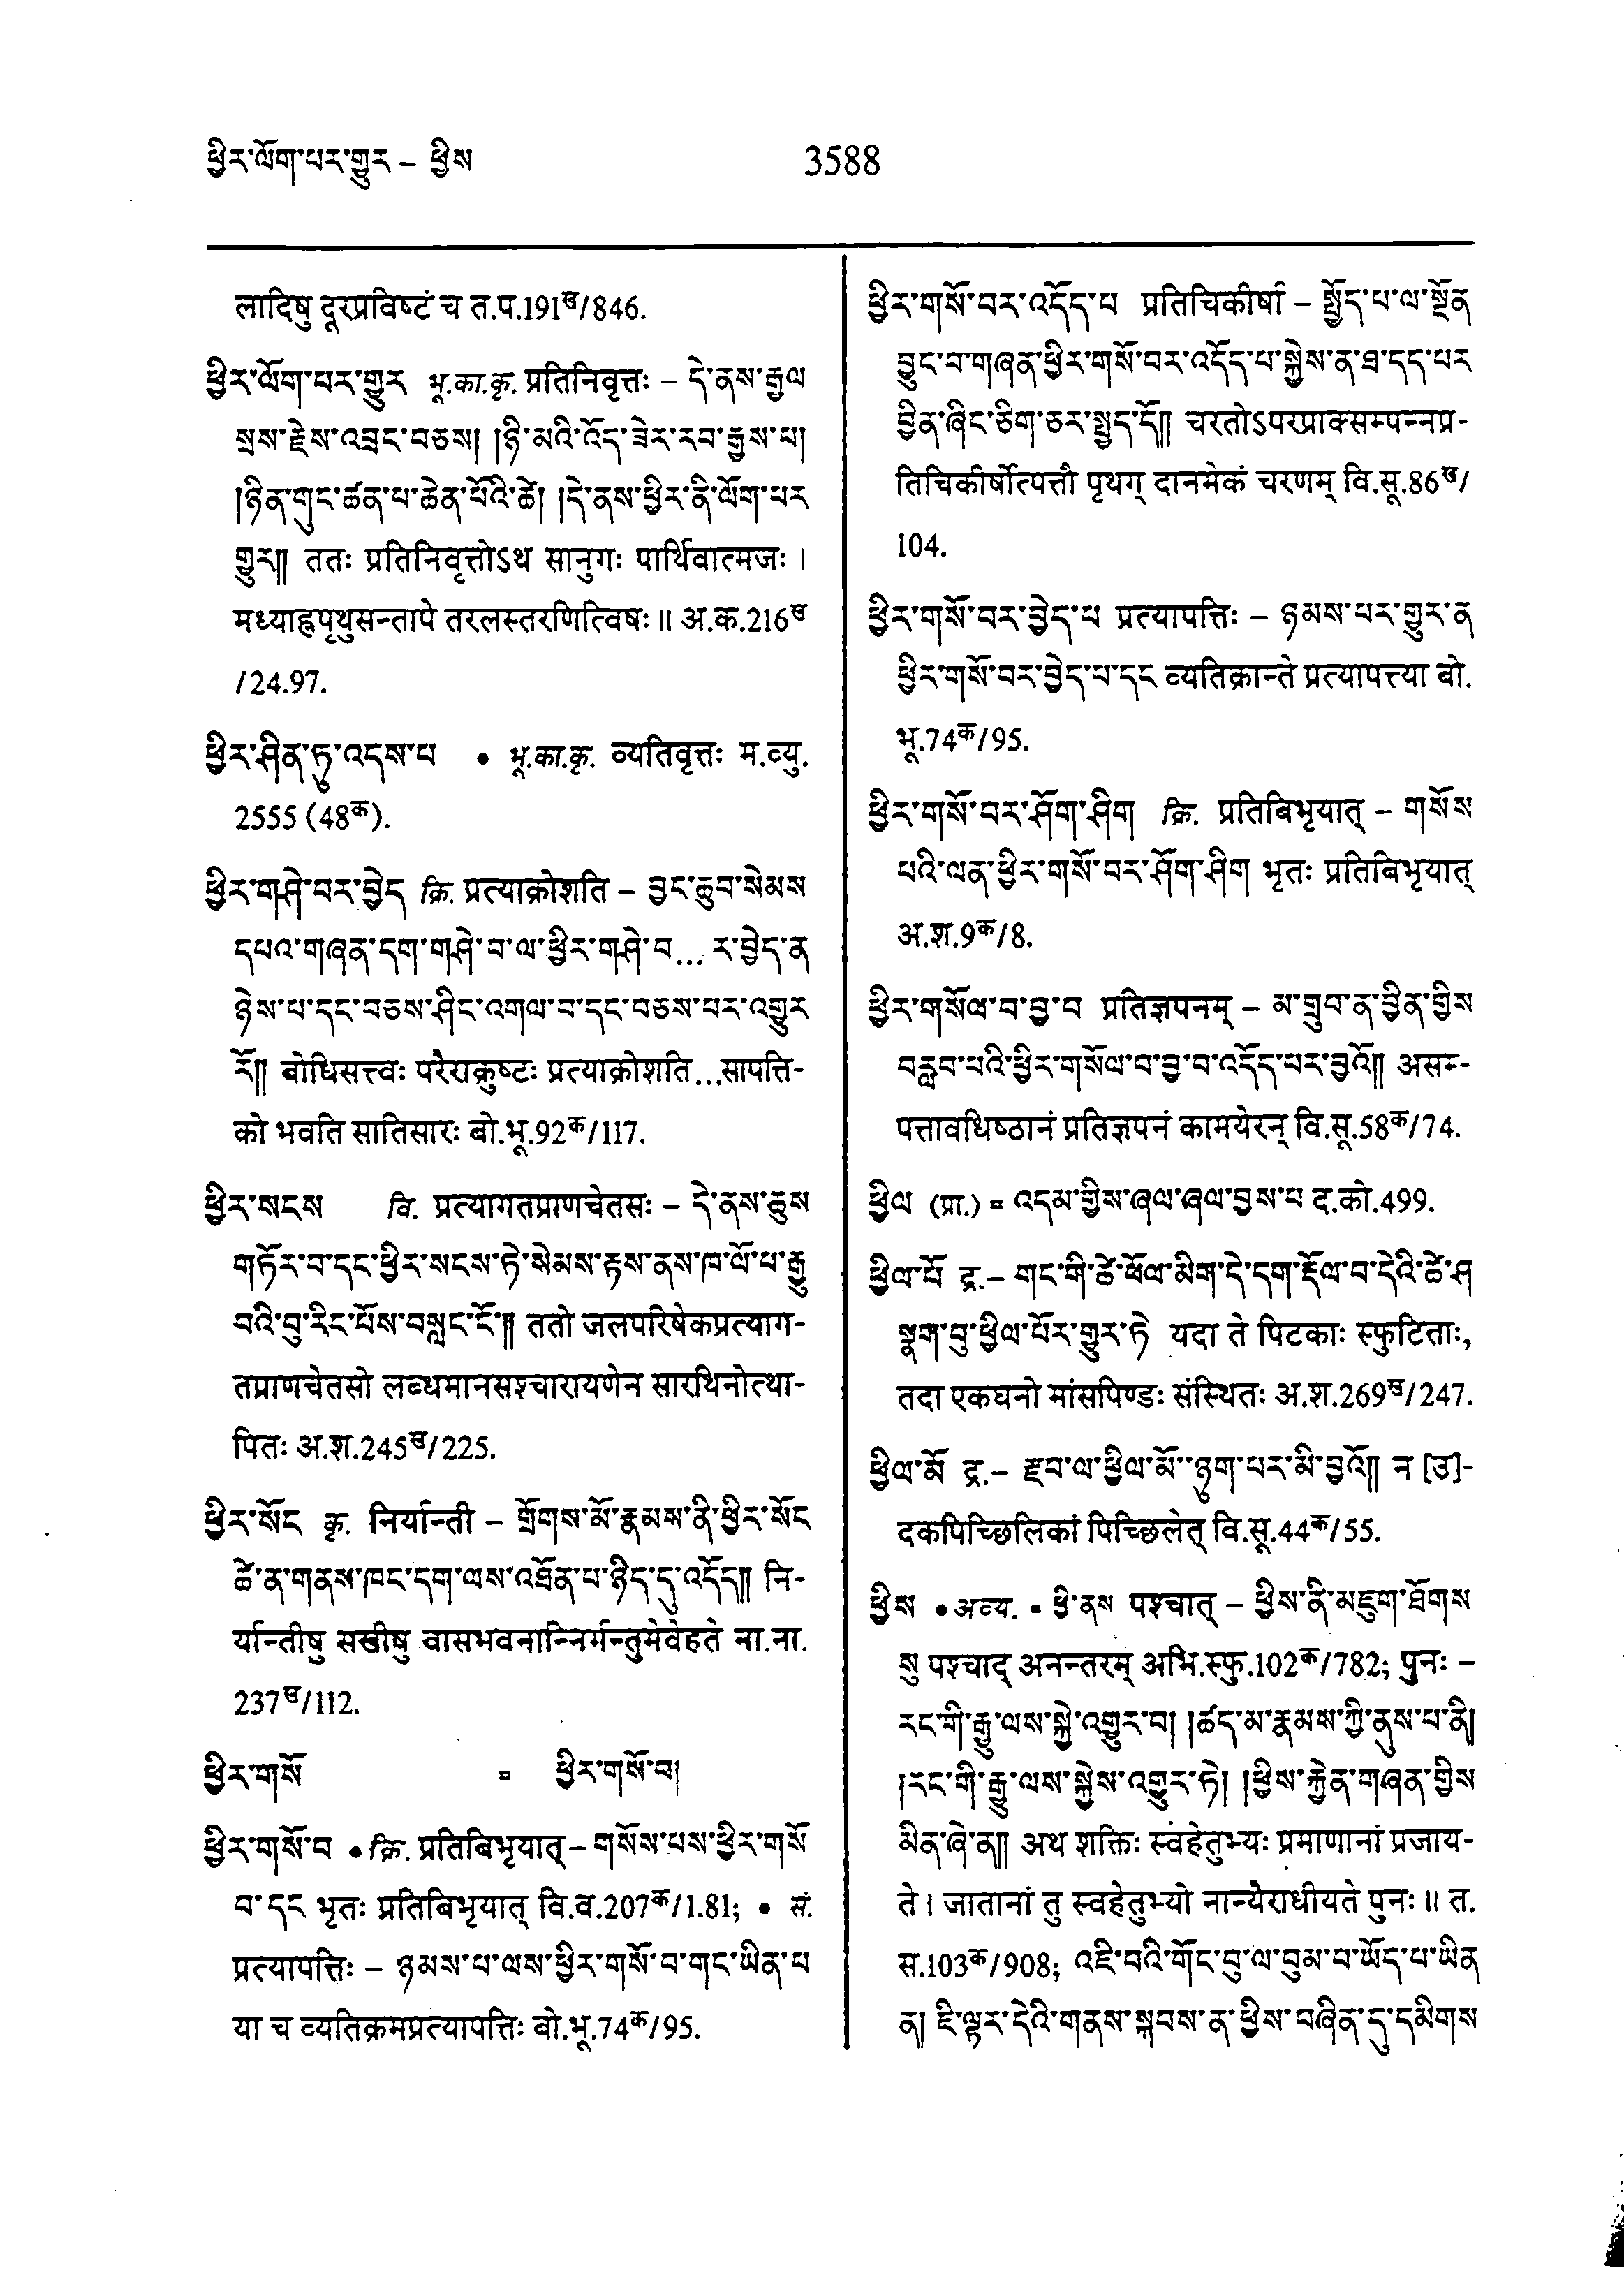 ཕྱིར་ལོག་པར་གྱུར – ཕྱིས
3588
लादिषु दूरप्रविष्टं च त.प.191ख/846.
ཕྱིར་ལོག་པར་གྱུར भू.का.कृ. प्रतिनिवृत्तः – དེ་ནས་རྒྱལ
སྲས་རྗེས་འབྲང་བཅས། །ཉི་མའི་འོད་ཟེར་རབ་རྒྱས་པ།
།ཉིན་གུང་ཚན་པ་ཆེན་པོའི་ཚེ། །དེ་ནས་ཕྱིར་ནི་ལོག་པར
གྱུར།། ततः प्रतिनिवृत्तोऽथ सानुगः पार्थिवात्मजः ।
मध्याह्नपृथुसन्तापे तरलस्तरणित्विषः ॥ अ.क.216ख
/24.97.
ཕྱིར་ཤིན་ཏུ་འདས་པ • भू.का.कृ. व्यतिवृत्तः म.व्यु.
2555 (48क).
ཕྱིར་གཤེ་བར་བྱེད क्रि. प्रत्याक्रोशति – བྱང་ཆུབ་སེམས
དཔའ་གཞན་དག་གཤེ་བ་ལ་ཕྱིར་གཤེ་བ... ར་བྱེད་ན
ཉེས་པ་དང་བཅས་ཤིང་འགལ་བ་དང་བཅས་པར་འགྱུར
རོ།། बोधिसत्त्वः परैराक्रुष्टः प्रत्याक्रोशति...सापत्ति-
को भवति सातिसारः बो.भू.92क/117.
ཕྱིར་སངས वि. प्रत्यागतप्राणचेतसः – དེ་ནས་ཆུས
གཏོར་བ་དང་ཕྱིར་སངས་ཏེ་སེམས་རྟས་ནས་ཁ་ལོ་པ་རྒྱུ
བའི་བུ་རིང་པོས་བསླང་ངོ༌།། ततो जलपरिषेकप्रत्याग-
तप्राणचेतसो लब्धमानसश्चारायणेन सारथिनोत्था-
पितः अ.श.245ख/225.
ཕྱིར་སོང कृ. निर्यान्ती – གྲོགས་མོ་རྣམས་ནི་ཕྱིར་སོང
ཚེ་ན་གནས་ཁང་དག་ལས་འཐོན་པ་ཉིད་དུ་འདོད།། नि-
र्यान्तीषु सखीषु वासभवनान्निर्मन्तुमेवेहते ना.ना.
237ख/112.
ཕྱིར་གསོ = ཕྱིར་གསོ་བ།
ཕྱིར་གསོ་བ • क्रि. प्रतिबिभृयात् – གསོས་པས་ཕྱིར་གསོ
བ་དང भृतः प्रतिबिभृयात् वि.व.207क/1.81; • सं.
प्रत्यापत्तिः – ཉམས་པ་ལས་ཕྱིར་གསོ་བ་གང་ཡིན་པ
या च व्यतिक्रमप्रत्यापत्तिः बो.भू.74क/95.
ཕྱིར་གསོ་བར་འདོད་པ प्रतिचिकीर्षा – སྤྱོད་པ་ལ་སྔོན
བྱུང་བ་གཞན་ཕྱིར་གསོ་བར་འདོད་པ་སྐྱེས་ན་ཐ་དད་པར
བྱིན་ཞིང་ཅིག་ཅར་སྤྱད་དོ།། चरतोऽपरप्राक्सम्पन्नप्र-
तिचिकीर्षोत्पत्तौ पृथग् दानमेकं चरणम् वि.सू.86ख/
104.
ཕྱིར་གསོ་བར་བྱེད་པ प्रत्यापत्तिः – ཉམས་པར་གྱུར་ན
ཕྱིར་གསོ་བར་བྱེད་པ་དང व्यतिक्रान्ते प्रत्यापत्त्या बो.
भू.74क/95.
ཕྱིར་གསོ་བར་ཤོག་ཤིག क्रि. प्रतिबिभृयात् – གསོས
པའི་ལན་ཕྱིར་གསོ་བར་ཤོག་ཤིག भृतः प्रतिबिभृयात्
अ.श.9क/8.
ཕྱིར་གསོལ་བ་བྱ་བ प्रतिज्ञपनम् – མ་གྲུབ་ན་བྱིན་གྱིས
བརླབ་པའི་ཕྱིར་གསོལ་བ་བྱ་བ་འདོད་པར་བྱའོ།། असम-
पत्तावधिष्ठानं प्रतिज्ञपनं कामयेरन् वि.सू.58क/74.
ཕྱིལ (प्रा.) = འདམ་གྱིས་ཞལ་ཞལ་བྱས་པ द.को.499.
ཕྱིལ་པོ द्र.– གང་གི་ཚེ་ཕོལ་མིག་དེ་དག་རྡོལ་བ་དེའི་ཚེ་ཤ
སྣག་བུ་ཕྱིལ་པོར་གྱུར་ཏེ यदा ते पिटकाः स्फुटिताः,
तदा एकघनो मांसपिण्डः संस्थितः अ.श.269ख/247.
ཕྱིལ་མོ द्र.– རྫབ་ལ་ཕྱིལ་མོ་ཉུག་པར་མི་བྱའོ།། न [उ]-
दकपिच्छिलिकां पिच्छिलेत् वि.सू.44क/55.
ཕྱིས • अव्य. = ཕྱི་ནས पश्चात् – ཕྱིས་ནི་མཇུག་ཐོགས
སུ पश्चाद् अनन्तरम् अभि.स्फु.102क/782; पुनः –
རང་གི་རྒྱུ་ལས་སྐྱེ་འགྱུར་བ། །ཚད་མ་རྣམས་ཀྱི་ནུས་པ་ནི།
།རང་གི་རྒྱུ་ལས་སྐྱེས་འགྱུར་ཏེ། །ཕྱིས་རྐྱེན་གཞན་གྱིས
མིན་ཞེ་ན།། अथ शक्तिः स्वहेतुभ्यः प्रमाणानां प्रजाय-
ते । जातानां तु स्वहेतुभ्यो नान्यैराधीयते पुनः ॥ त.
स.103क/908; འཇི་བའི་གོང་བུ་ལ་བུམ་པ་ཡོད་པ་ཡིན
ན། ཇི་ལྟར་དེའི་གནས་སྐབས་ན་ཕྱིས་བཞིན་དུ་དམིགས